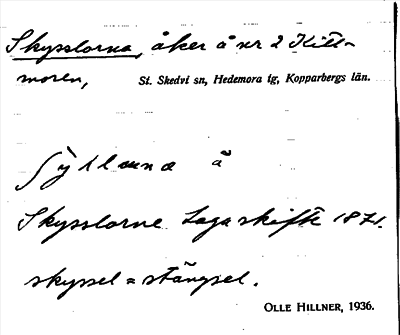 Skysslorna, åker å nr 2 Kitt-
moren, St. Skedvi sn, Hedemora tg, Kopparbergs län.
å
Skysslorne Laga skifte 1871.
skyssel = stängsel.
OLLE HILLNER, 1936.